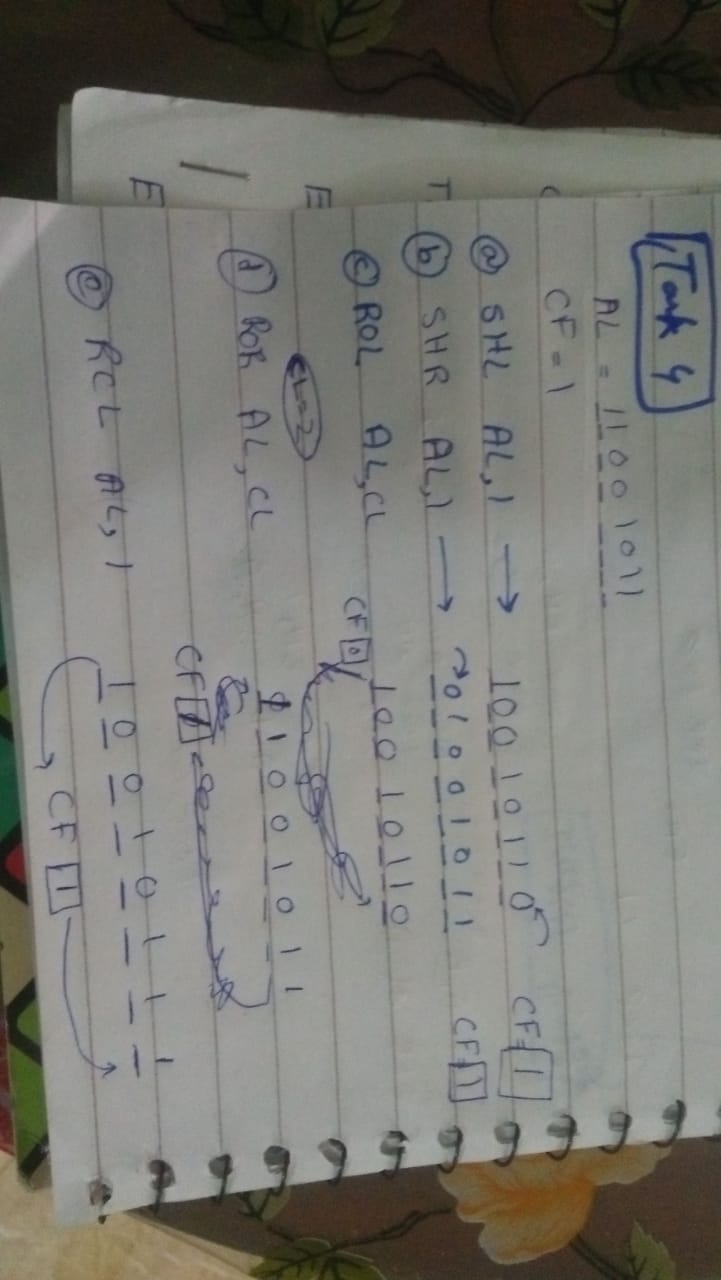 Task 4
AL = 11001011
CF = 1
(a) SHL AL,1 → 10010110 CF=1
(b) SHR AL,1 → 01001011 CF=1
(c) ROL AL,CL 10010110
CF 0
CL=2
(d) ROR AL,CL 11001011
CF 1
(e) RCL AL,1 10010111
CF 1
E
E
T